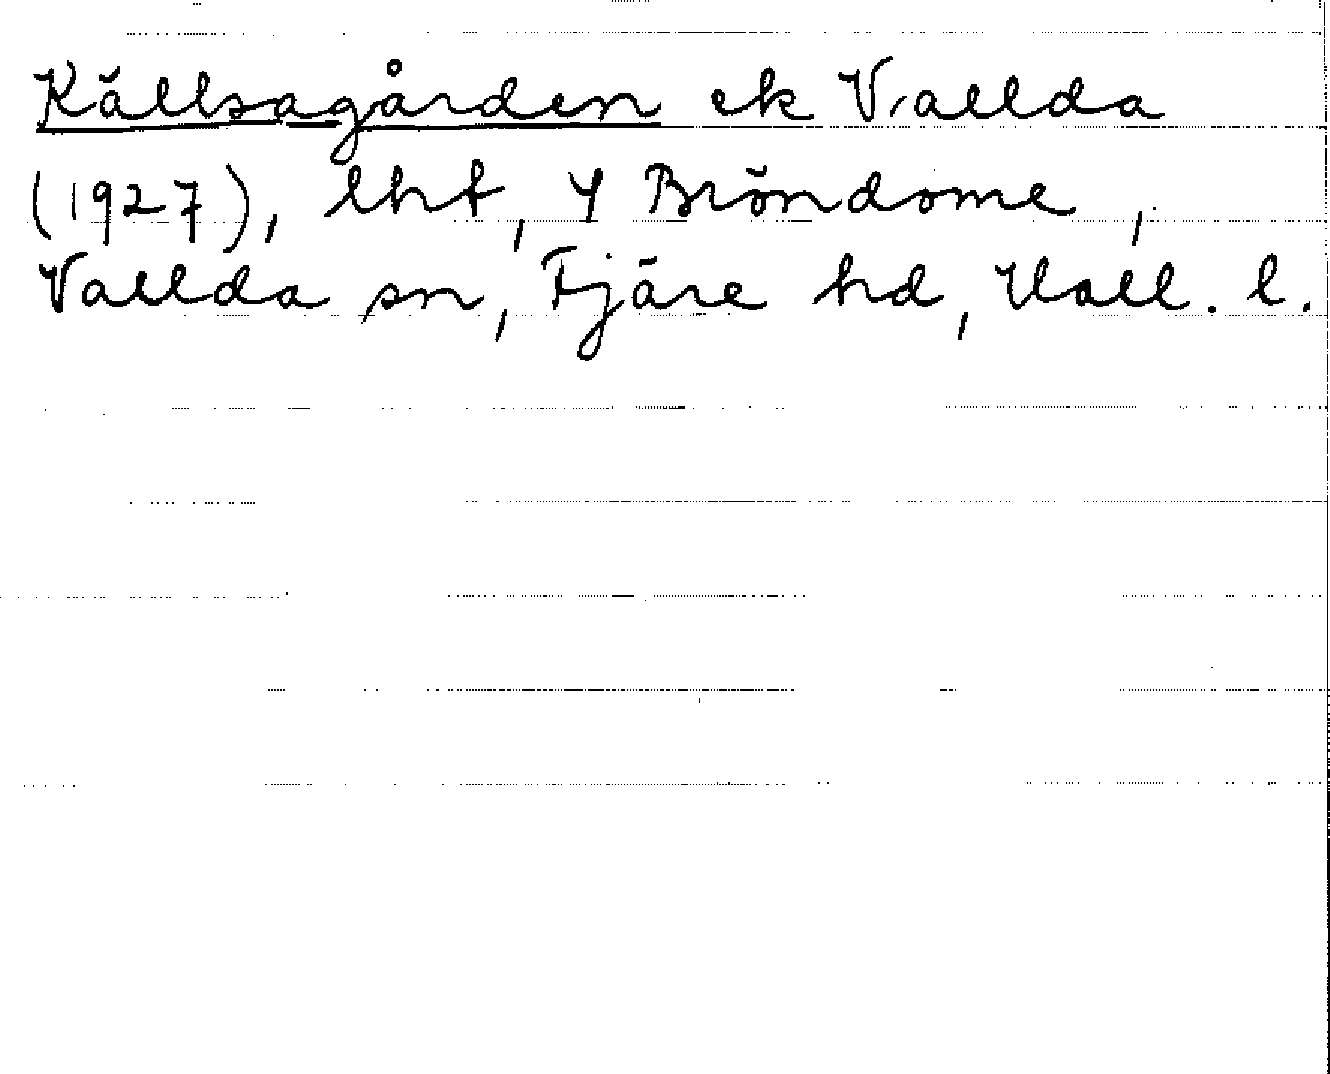 Källsagården ek Vallda
(1927), lht, Y Bröndome,
Vallda sn, Fjäre hd, Hall. l.